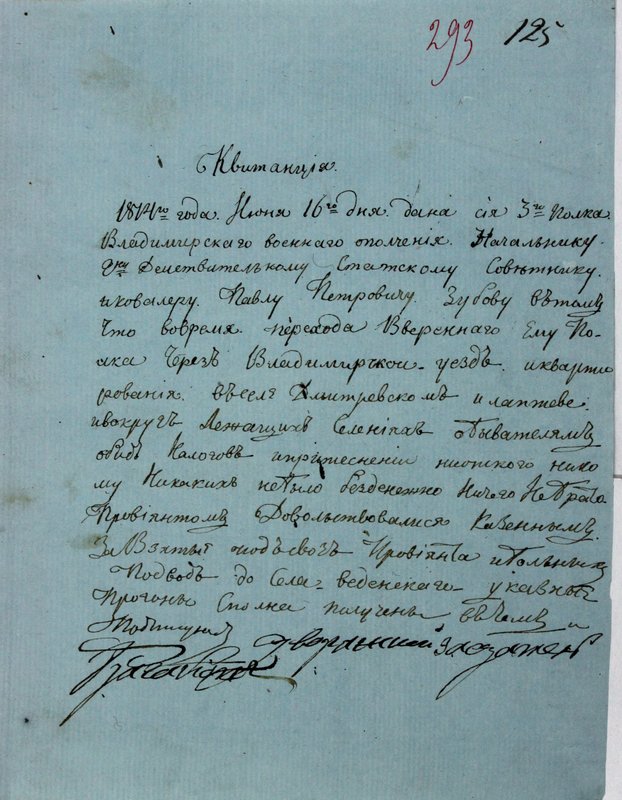 293 125
Квитанція.
1814го года. Июня 16го дня. дана сія 3го Полка
Владимирскаго военнаго ополченія. Начальнику.
Дѣйствительному Статскому Совѣтнику.
икавалеру. Павлу Петровичу. Зубову вътомъ
что вовремя. перехода Ввереннаго Ему По-
лка Чрезъ Владимирской уездъ. икварти
рованія. въселѣ Дмитревскомъ и лаптеве.
ивокругъ Лежащихъ Селеніяхъ обывателямъ
обидъ Налоговъ ипритеснении ниоткого нико
му Никакихъ небыло безденежно Ничего Небрато
Провіянтомъ Довольствовалися Казеннымъ.
За Взятыя подъсвозъ Провіянта ибольныхъ
Подводъ до Села веденскаго указныя
Прогоны Сполна получены вчемъ и
Подписуюсь
дворянский заседатель